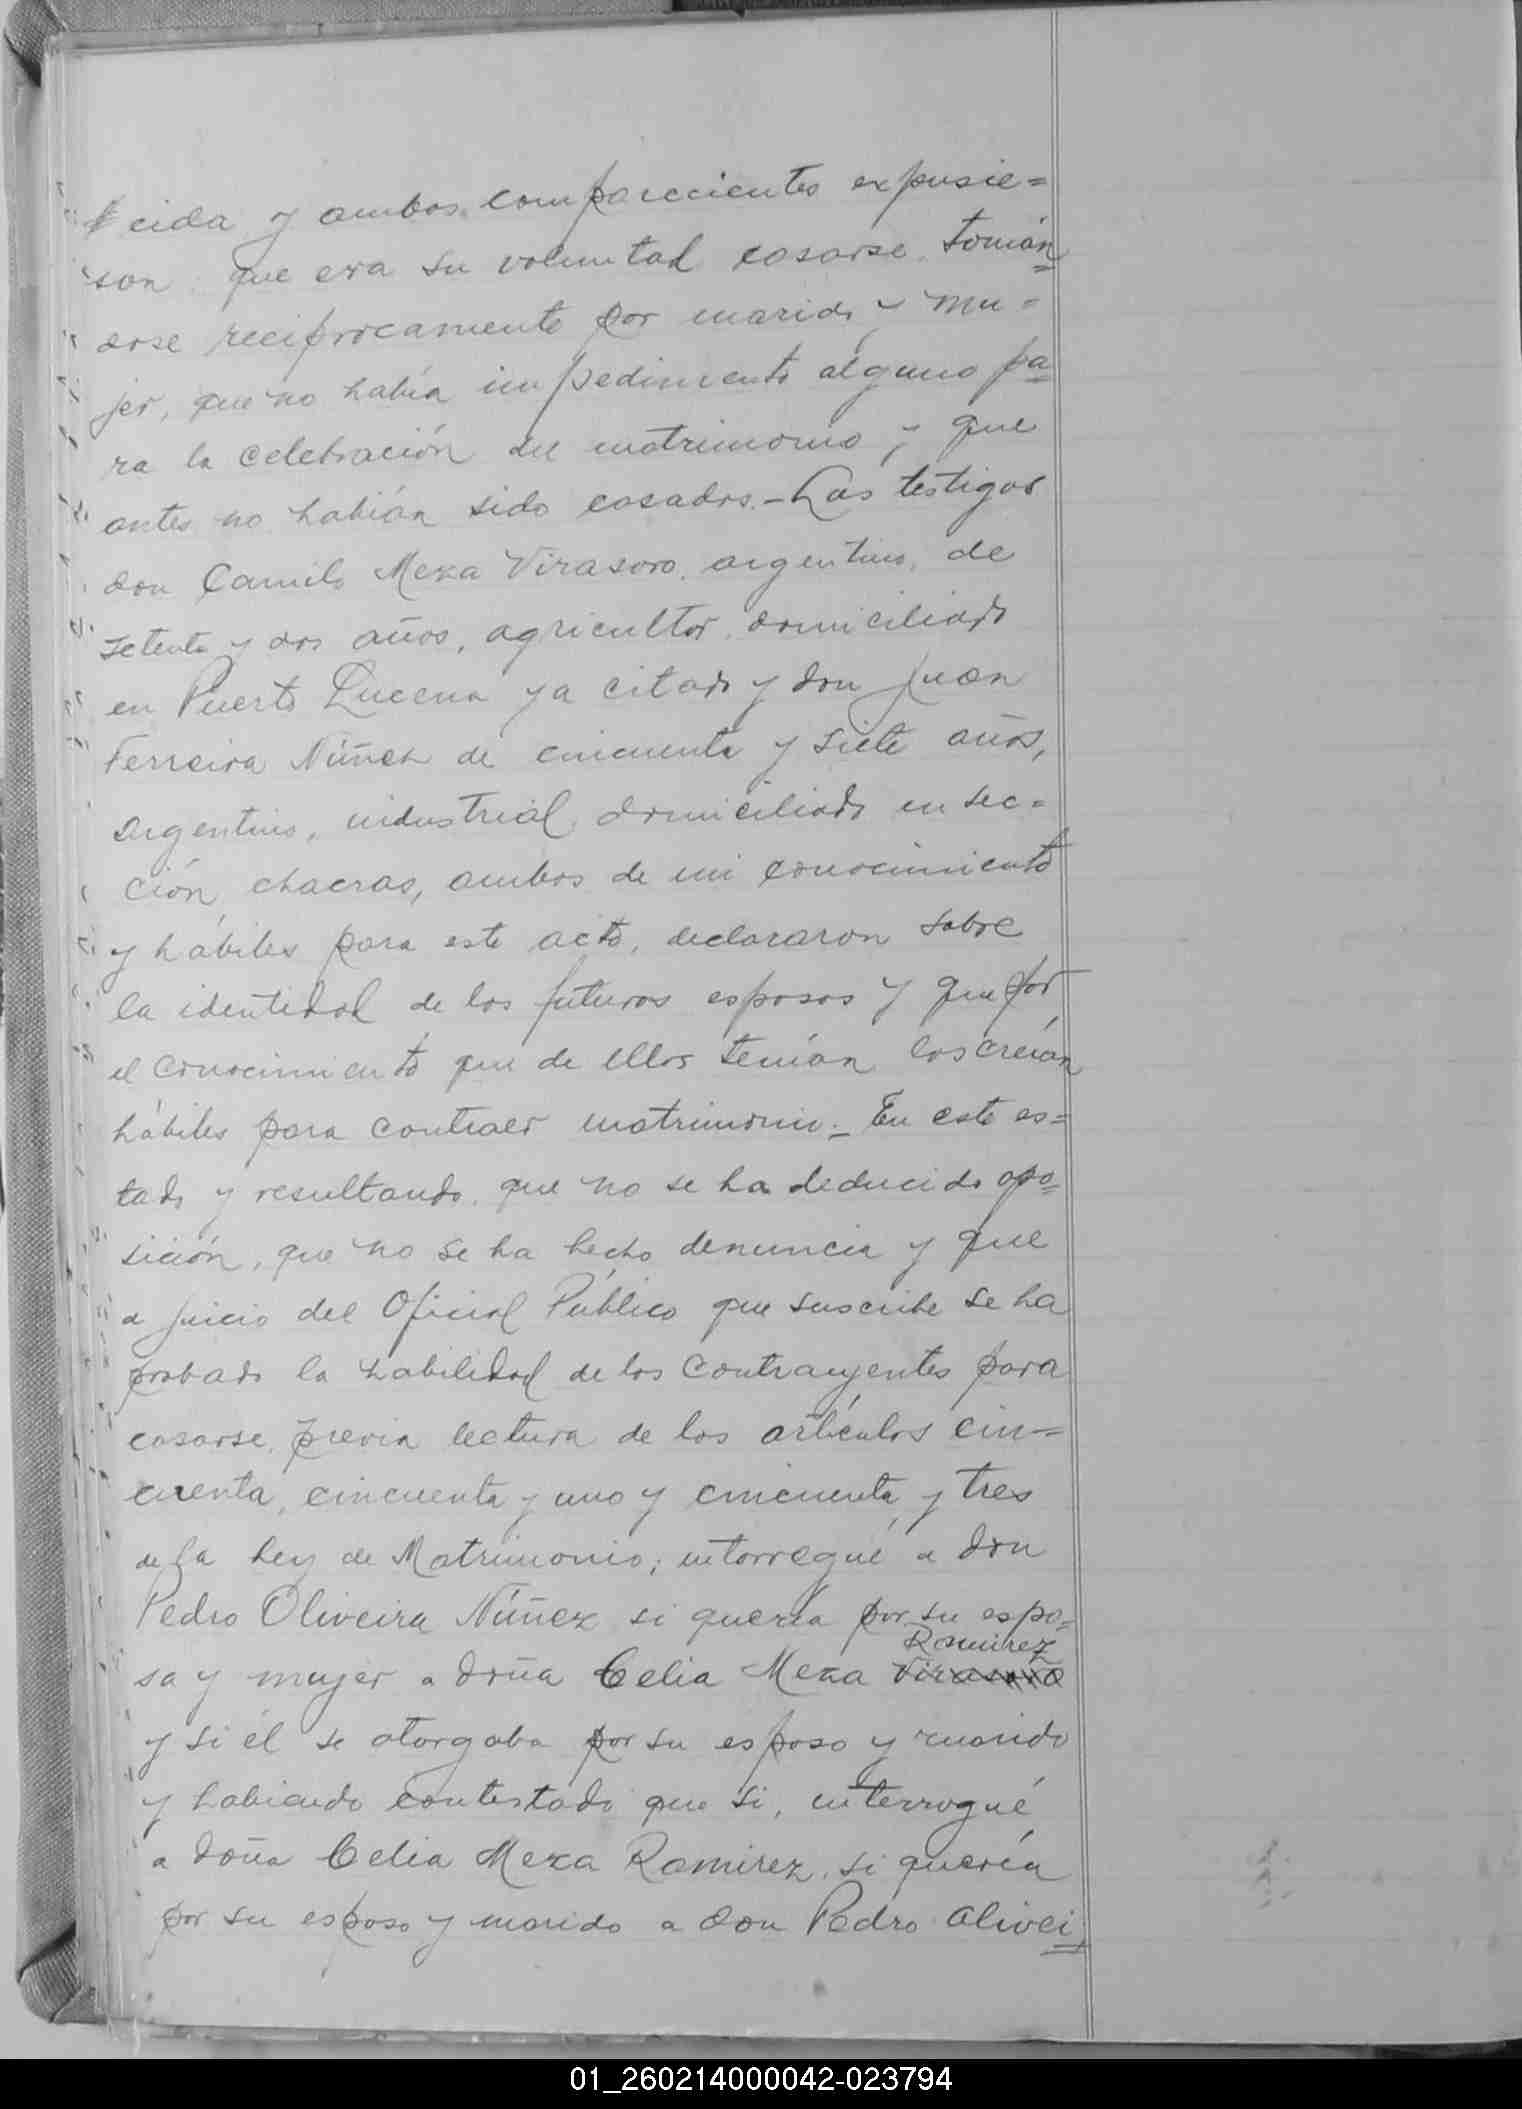 cida y ambos comparecientes expusie=
ron que era su voluntad casarse tomán=
dose reciprocamente por marido y mu=
jer, que no había impedimento alguno pa=
ra la celebración del matrimonio y que
antes no habían sido casados.- Los testigos
don Camilo Meza Virasoro, argentino, de
setenta y dos años, agricultor, domiciliado
en Puerto Lucena ya citado y don Juan
Ferreira Núñez de cincuenta y siete años,
argentino, industrial, domiciliado en sec=
ción chacras, ambos de mi conocimiento
y hábiles para este acto, declararon sobre
la identidad de los futuros esposos y que por
el conocimiento que de ellos tenían los creían
hábiles para contraer matrimonio.- En este es=
tado y resultando que no se ha deducido opo=
sición, que no se ha hecho denuncia y que
a juicio del Oficial Público que suscribe se ha
probado la habilidad de los contrayentes para
casarse, previa lectura de los artículos cin=
cuenta, cincuenta y uno y cincuenta y tres
de la ley de Matrimonio, intorregué a don
Pedro Oliveira Núñez si quería por su espo=
Ramirez
sa y mujer a doña Celia Meza Virasoro
y si él se otorgaba por su esposo y marido
y habiendo contestado que si, interrogué
a doña Celia Meza Ramirez, si quería
por su esposo y marido a don Pedro Olivei=
01_260214000042-023794